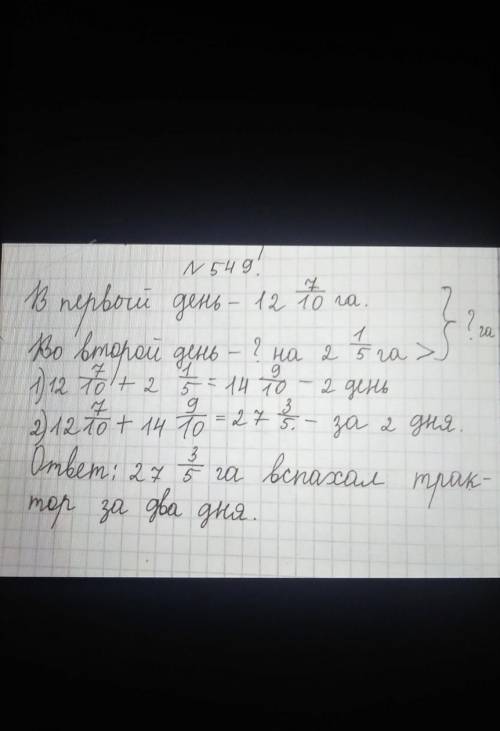 №549!
В первый день - 12 7/10 га.
Во второй день - ? на 2 1/5 га > } ? га
1) 12 7/10 + 2 1/5 = 14 9/10 - 2 день
2) 12 7/10 + 14 9/10 = 27 3/5. - за 2 дня.
Ответ: 27 3/5 га вспахал трак-
тор за два дня.